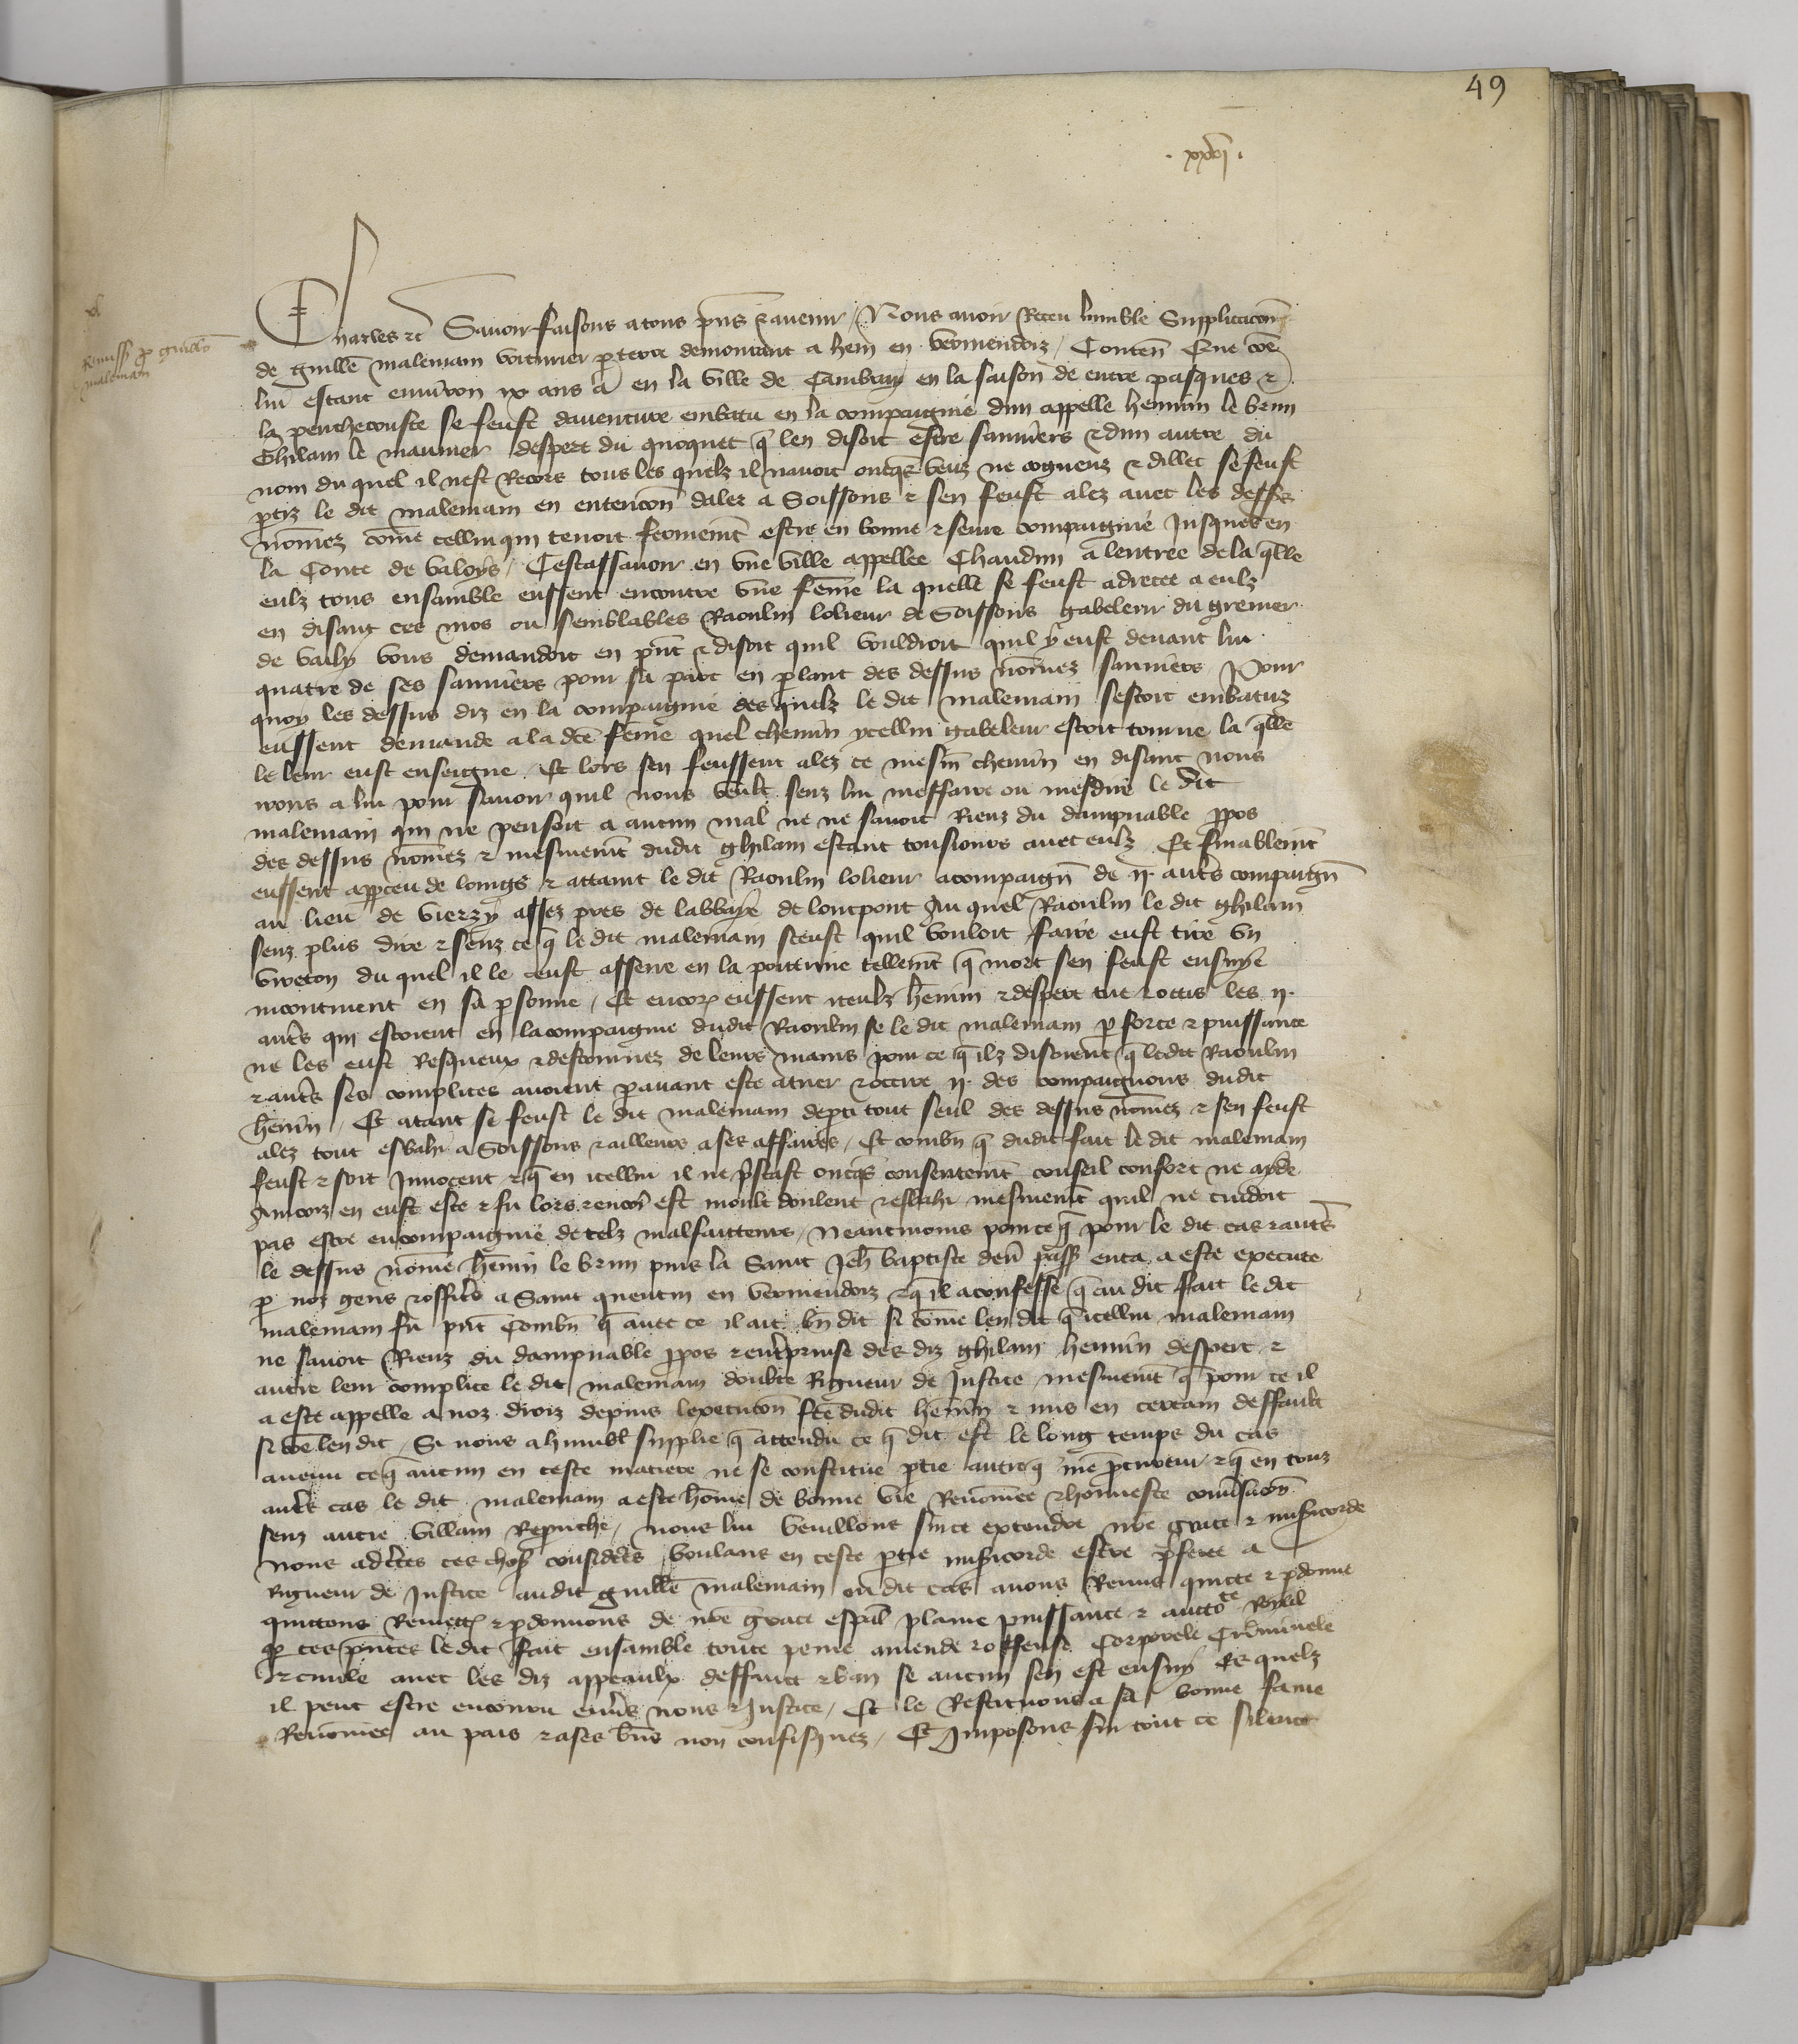 49
. xxvi .
Remiss. p guillō
malemain
Charles etc Savoir faisons a tous pn̄s ⁊ avenir / Nous avoir Receu lumble Supplicacōn
de guillē malemain voiturier p terre demourant a hem en vermendoiz / Contenn̄ Que cōe
lui estant environ ix ans a en la ville de Cambray en la saison de entre pasques ⁊
la penthecouste se feust daventure embatu en la compaignie dun appelle hennin le brun
Ghilain le maunier despert du quoquet q̄ len disoit estre sauniers ⁊ dun autre du
nom du quel il nest Recors tous les quelz il navoit oncq̄s veuz ne cogneuz ⁊ dillec se feust
ptiz le dit malemain en entencōn daler a Soissons ⁊ sen feust alez avec les dessus
nōmez cōme cellui qui tenoit fermemt̄ estre en bonne ⁊ seure compaignie Jusques en
la Conte de valoys / Cestassavoir en une ville appellee Chaudun a lentree de la q̄lle
eulz tous ensamble eussent encontre une fēme la quelle se feust adrecee a eulz
en disant ces mos ou semblables Raoulin lolieur de Soissons gabeleur du grenier
de vailly vous demandoit en pn̄t ⁊ disoit quil vouldroit quil y eust devant lui
quatre de ses sauniers pour sa part en plant des dessus nōmez sauniers Pour
quoy les dessus diz en la compaignie des quelz le dit malemain sestoit embatuz
eussent demande a la dcē fēme quel chemin ycellui gabeleur estoit tourne la q̄lle
le leur eust enseigne Et lors sen feussent alez ce mesm̄ chemin en disant nous
irons a lui pour savoir quil nous veult senz lui meffaire ou mesdire le dit
malemain qui ne pensoit a aucun mal ne ne savoit Rienz du dampnable ppos
des dessus nōmez ⁊ mesmemt̄ dudit ghilain estant tousiours avec eulz Et finablemt̄
eussent appceu de loings ⁊ attaint le dit Raoulin lolieur acompaign̄ de ij. autrēs compaign̄
au lieu de vierzy assez pres de labbaye de loncpont Au quel Raoulin le dit ghilain
senz plus dire ⁊ senz ce q̄ le dit malemain sceust quil vouloit faire eust tire un
vireton du quel il le eust assene en la poitrine tellemt̄ q̄ mort sen feust ensuye
incontinent en sa psonne / Et encores eussent iceulz hēnin ⁊ despert tue ⁊ occis les ij.
autrēs qui estoient en la compaignie dudit Raoulin se le dit malemain p force ⁊ puissance
ne les eust Resqueux ⁊ destournez de leurs mains pour ce q̄ ilz disoient q̄ ledit Raoulin
⁊ autrēs ses complices avoient pavant este a tuer ⁊ occire ij. des compaignons dudit
hēnin / Et atant se feust le dit malemain depti tout seul des dessus nōmez ⁊ sen feust
alez tout esbahi a Soissons ⁊ ailleurs a ses affaires / Et combn̄ q̄ dudit fait le dit malemain
feust ⁊ soit Innocent ⁊ q̄ en icellui il ne pstast oncq̄s consentemt̄ conseil confort ne ayde
Aincoiz en eust este ⁊ fu lors ⁊ encor est moult doulent ⁊ esbahi mesmemt̄ quil ne cuidoit
pas estre en compaignie de telz malfaitteurs / Neantmoins pour ce q̄ pour le dit cas ⁊ autrēs
le dessus nōme hēnin le brun puis la Saint Jeh̄ baptiste derr̄ pass̄ enca a este execute
p noz gens ⁊ officrs̄ a Saint quentin en vermendoiz ⁊ q̄ il a confesse q̄ au dit fait le dit
malemain fu pn̄t Combn̄ q̄ avec ce il ait bn̄ dit si cōme len dit q̄ icellui malemain
ne savoit Rienz du dampnable ppos ⁊ entrēprinse des diz ghilain hennin despert ⁊
autre leur complice le dit malemain doubte Rigueur de Justice mesmemt̄ q̄ pour ce il
a este appelle a noz droiz depuis lexecucōn fcē dudit hēnin ⁊ mis en certain deffault
si cōe len dit / Si nous a humbl̄ supplie q̄ attendu ce q̄ dit est le long temps du cas
avenu ce q̄ aucun en ceste matiere ne se constitue ptie autre q̄ nrē pcureur ⁊ q̄ en touz
autrēs cas le dit malemain a este hōme de bonne vie Renōmee ⁊ honneste convsacōn
senz autre villain Reprouche / nous lui veuillons sur ce extendre nrē grace ⁊ misicorde
Nous adcertes ces chos̄ considerēs voulans en ceste ptie misicorde estre pferee a
Rigueur de Justice audit guillē malemain ou dit cas avons Remis quicte ⁊ pdonne
quittons Remettōs ⁊ pdonnons de nrē grace espal̄ plaine puissance ⁊ auctote Royal
p ces pn̄tes le dit fait ensamble toute peine amende ⁊ offense Corporele Criminele
⁊ civile avec les diz appeaulx deffaut ⁊ ban se aucun sen est ensuy Es quelz
il peut estre encouru envs nous ⁊ Justice / Et le Restituons a sa bonne fame
Renōmee au pais ⁊ a ses bns̄ non confisquez / Et Imposons sur tout ce silence